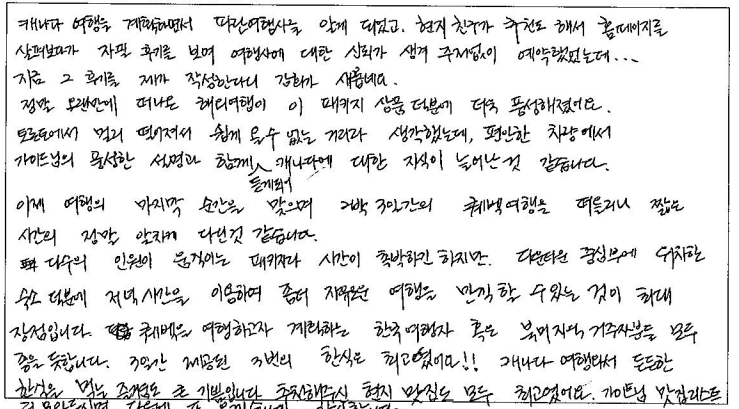 캐나다 여행을 계획하면서 파란여행사를 알게 되었고. 현지 친구가 추천도 해서 홈페이지를
살펴보다가 자필 후기를 보며 여행사에 대한 신뢰가 생겨 주저없이 예약했었는데...
지금 그 후기를 제가 작성한다니 감회가 새롭네요.
정말 오랜만에 떠나온 해외여행이 이 패키지 상품 덕분에 더욱 풍성해졌어요.
토론토에서 멀리 떨어져서 쉽게 올 수 없는 거리라 생각했는데, 편안한 차량에서
가이드님의 풍성한 설명과 함께 듣게되어 캐나다에 대한 지식이 늘어난 것 같습니다.
이제 여행의 마지막 순간을 맞으며 2박 3일간의 퀘벡여행을 떠올리니 짧은
시간의 정말 알차게 다닌것 같습니다.
다수의 인원이 움직이는 패키지라 시간이 촉박하긴 하지만. 다운타운 중심부에 위치한
숙소 덕분에 저녁시간을 이용하여 좀더 자유로운 여행을 만끽할 수 있는 것이 최대
장점입니다. 퀘벡을 여행하고자 계획하는 한국여행자 혹은 북미지역 거주자분들 모두
좋을 듯합니다. 3일간 제공된 3번의 한식은 최고였어요!! 캐나다 여행와서 든든한
한식을 먹는 큰 기쁨입니다 추천해주신 현지 맛집도 모두 최고였어요. 가이드님 맛집리스트